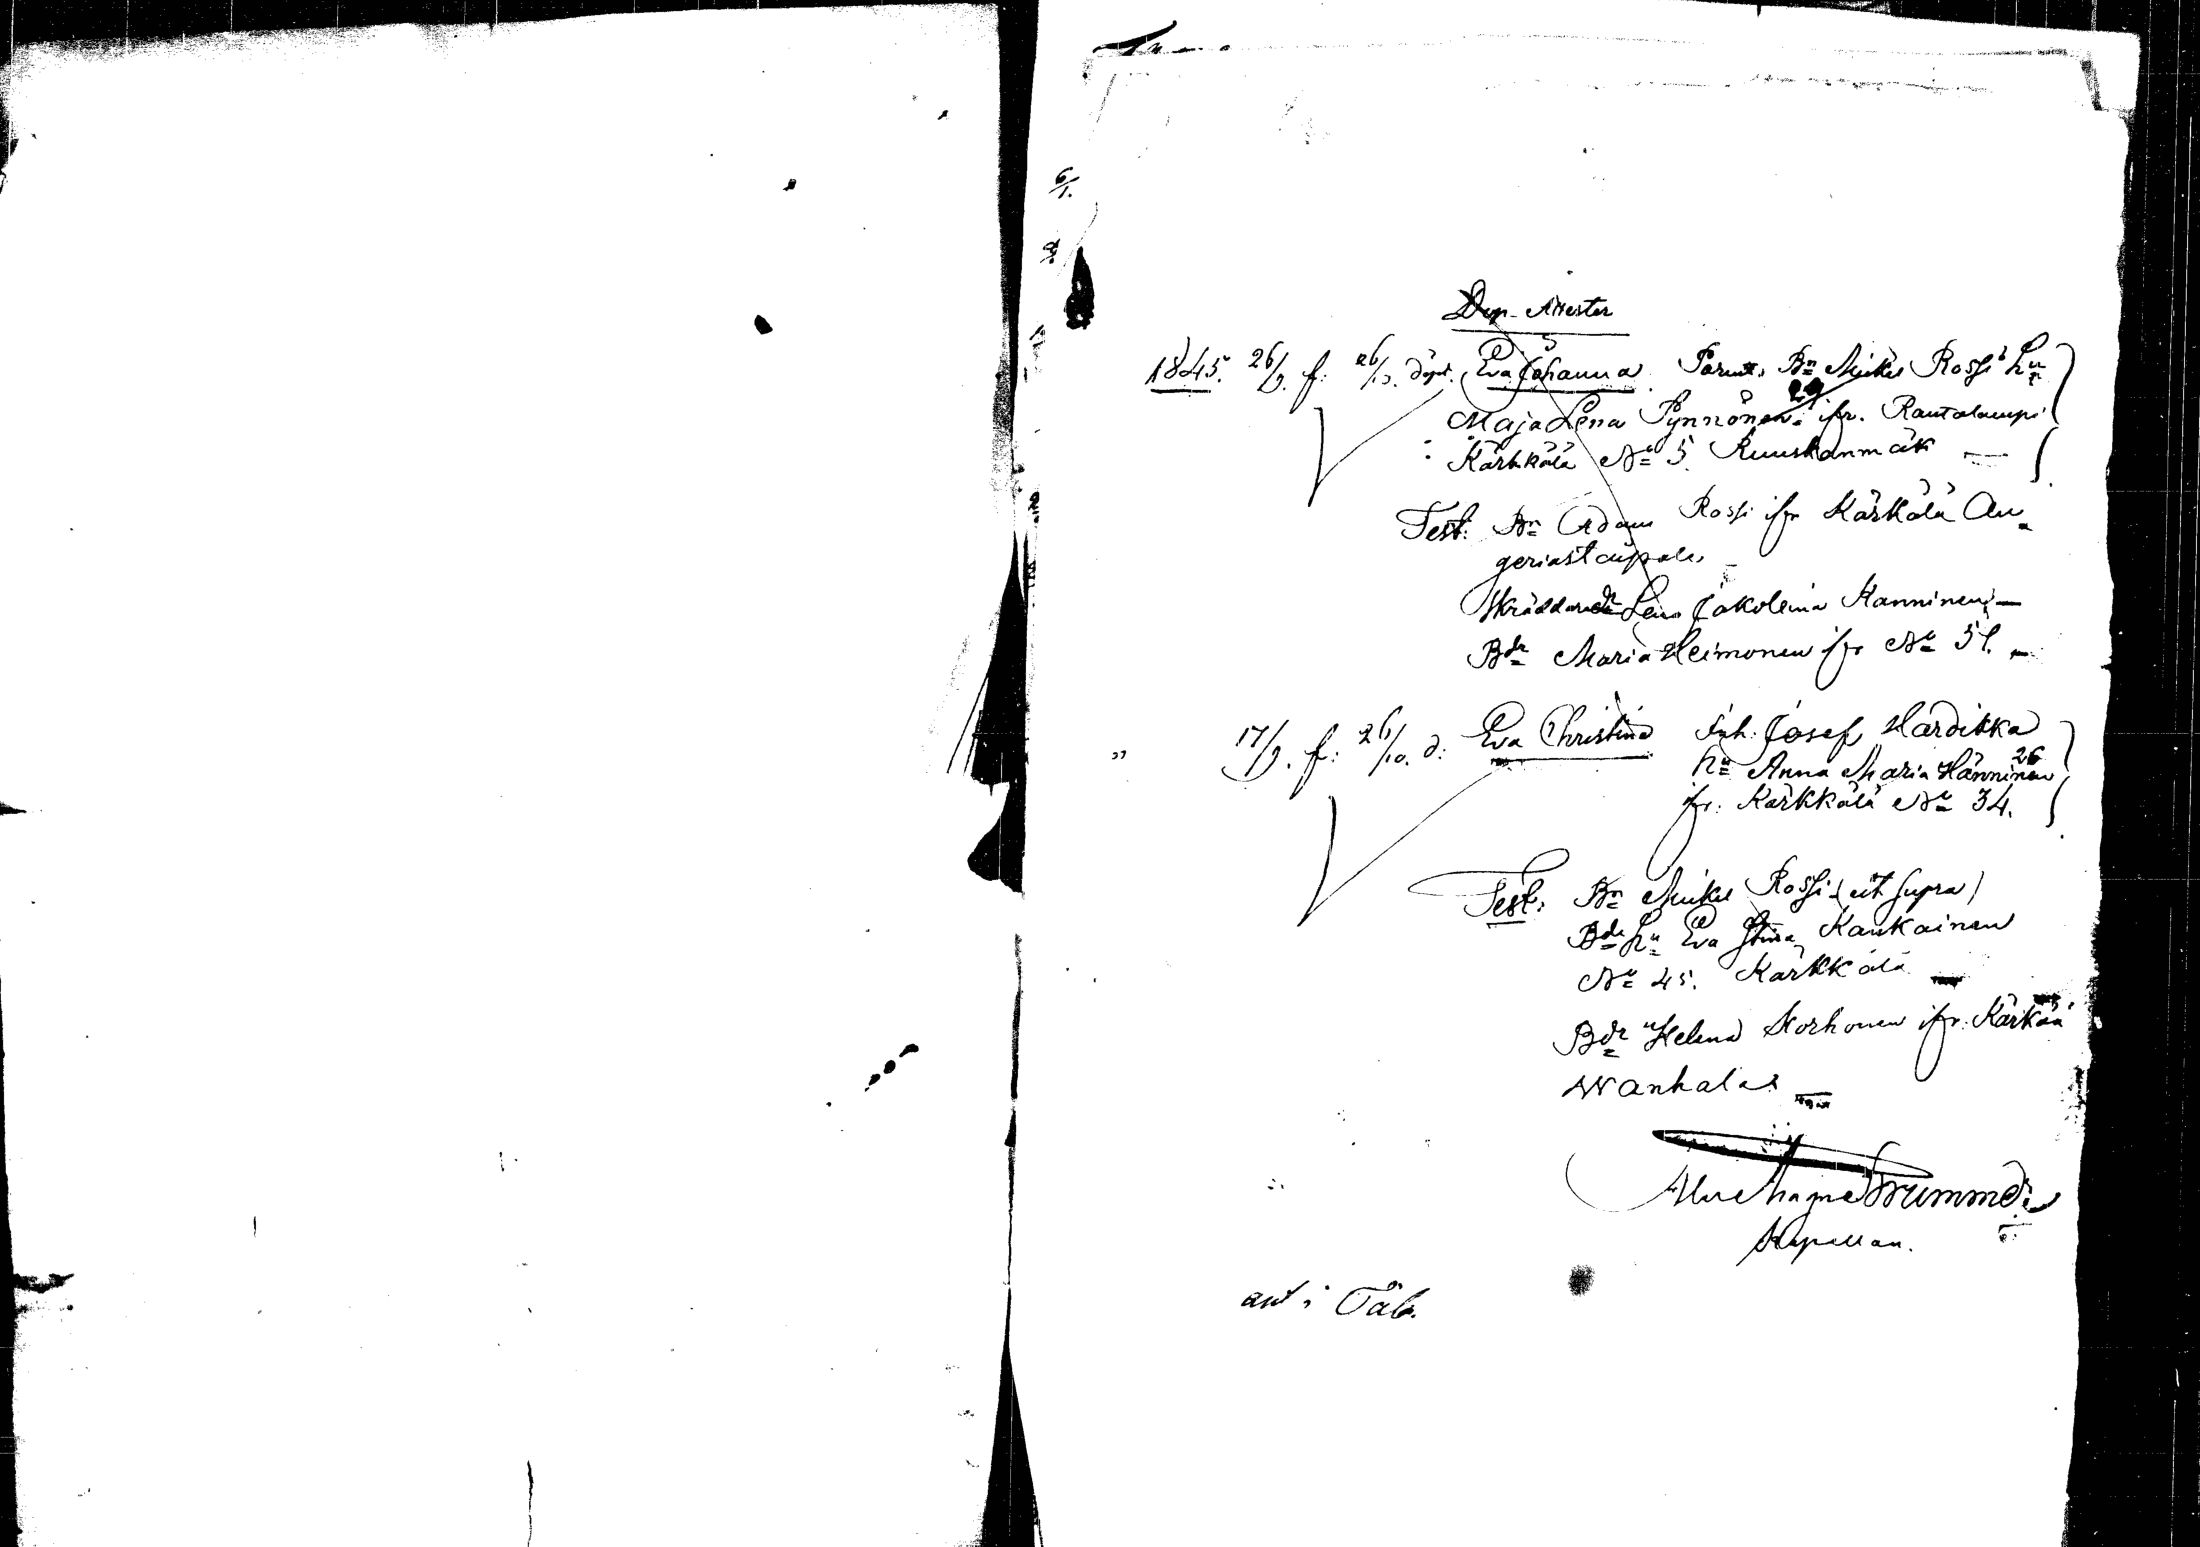 6/1.
Dop-Attester
1845. 26/9. f: 26/10. döpt. Eva Johanna. Parent. Bn Mikel Rossi hu
29
Maja Lena Pynnönen. ifr. Rautalampi
Kärkkälä No 5. Ruuskanmäk —
Test: Bn Adam Rossi ifr Kärkälä An-
geriastaipale.
Skräddare Lena Jakolena Kanninen, —
Bdr Maria Heimonen ifr No 51. —
" 17/9. f: 26/10. d: Eva Christina Inh. Josef Hardikka
hu Anna Maria Hänninen 26
ifr. Karkkälä No 34.
Test: Bn Mikel Rossi (ut supra)
Bde hu Eva Stina Kaukainen
No 45. Karkkälä —
Bdr Helena Korhonen ifr. Kärk
Wanhala
Kapellan.
ant i Tab.